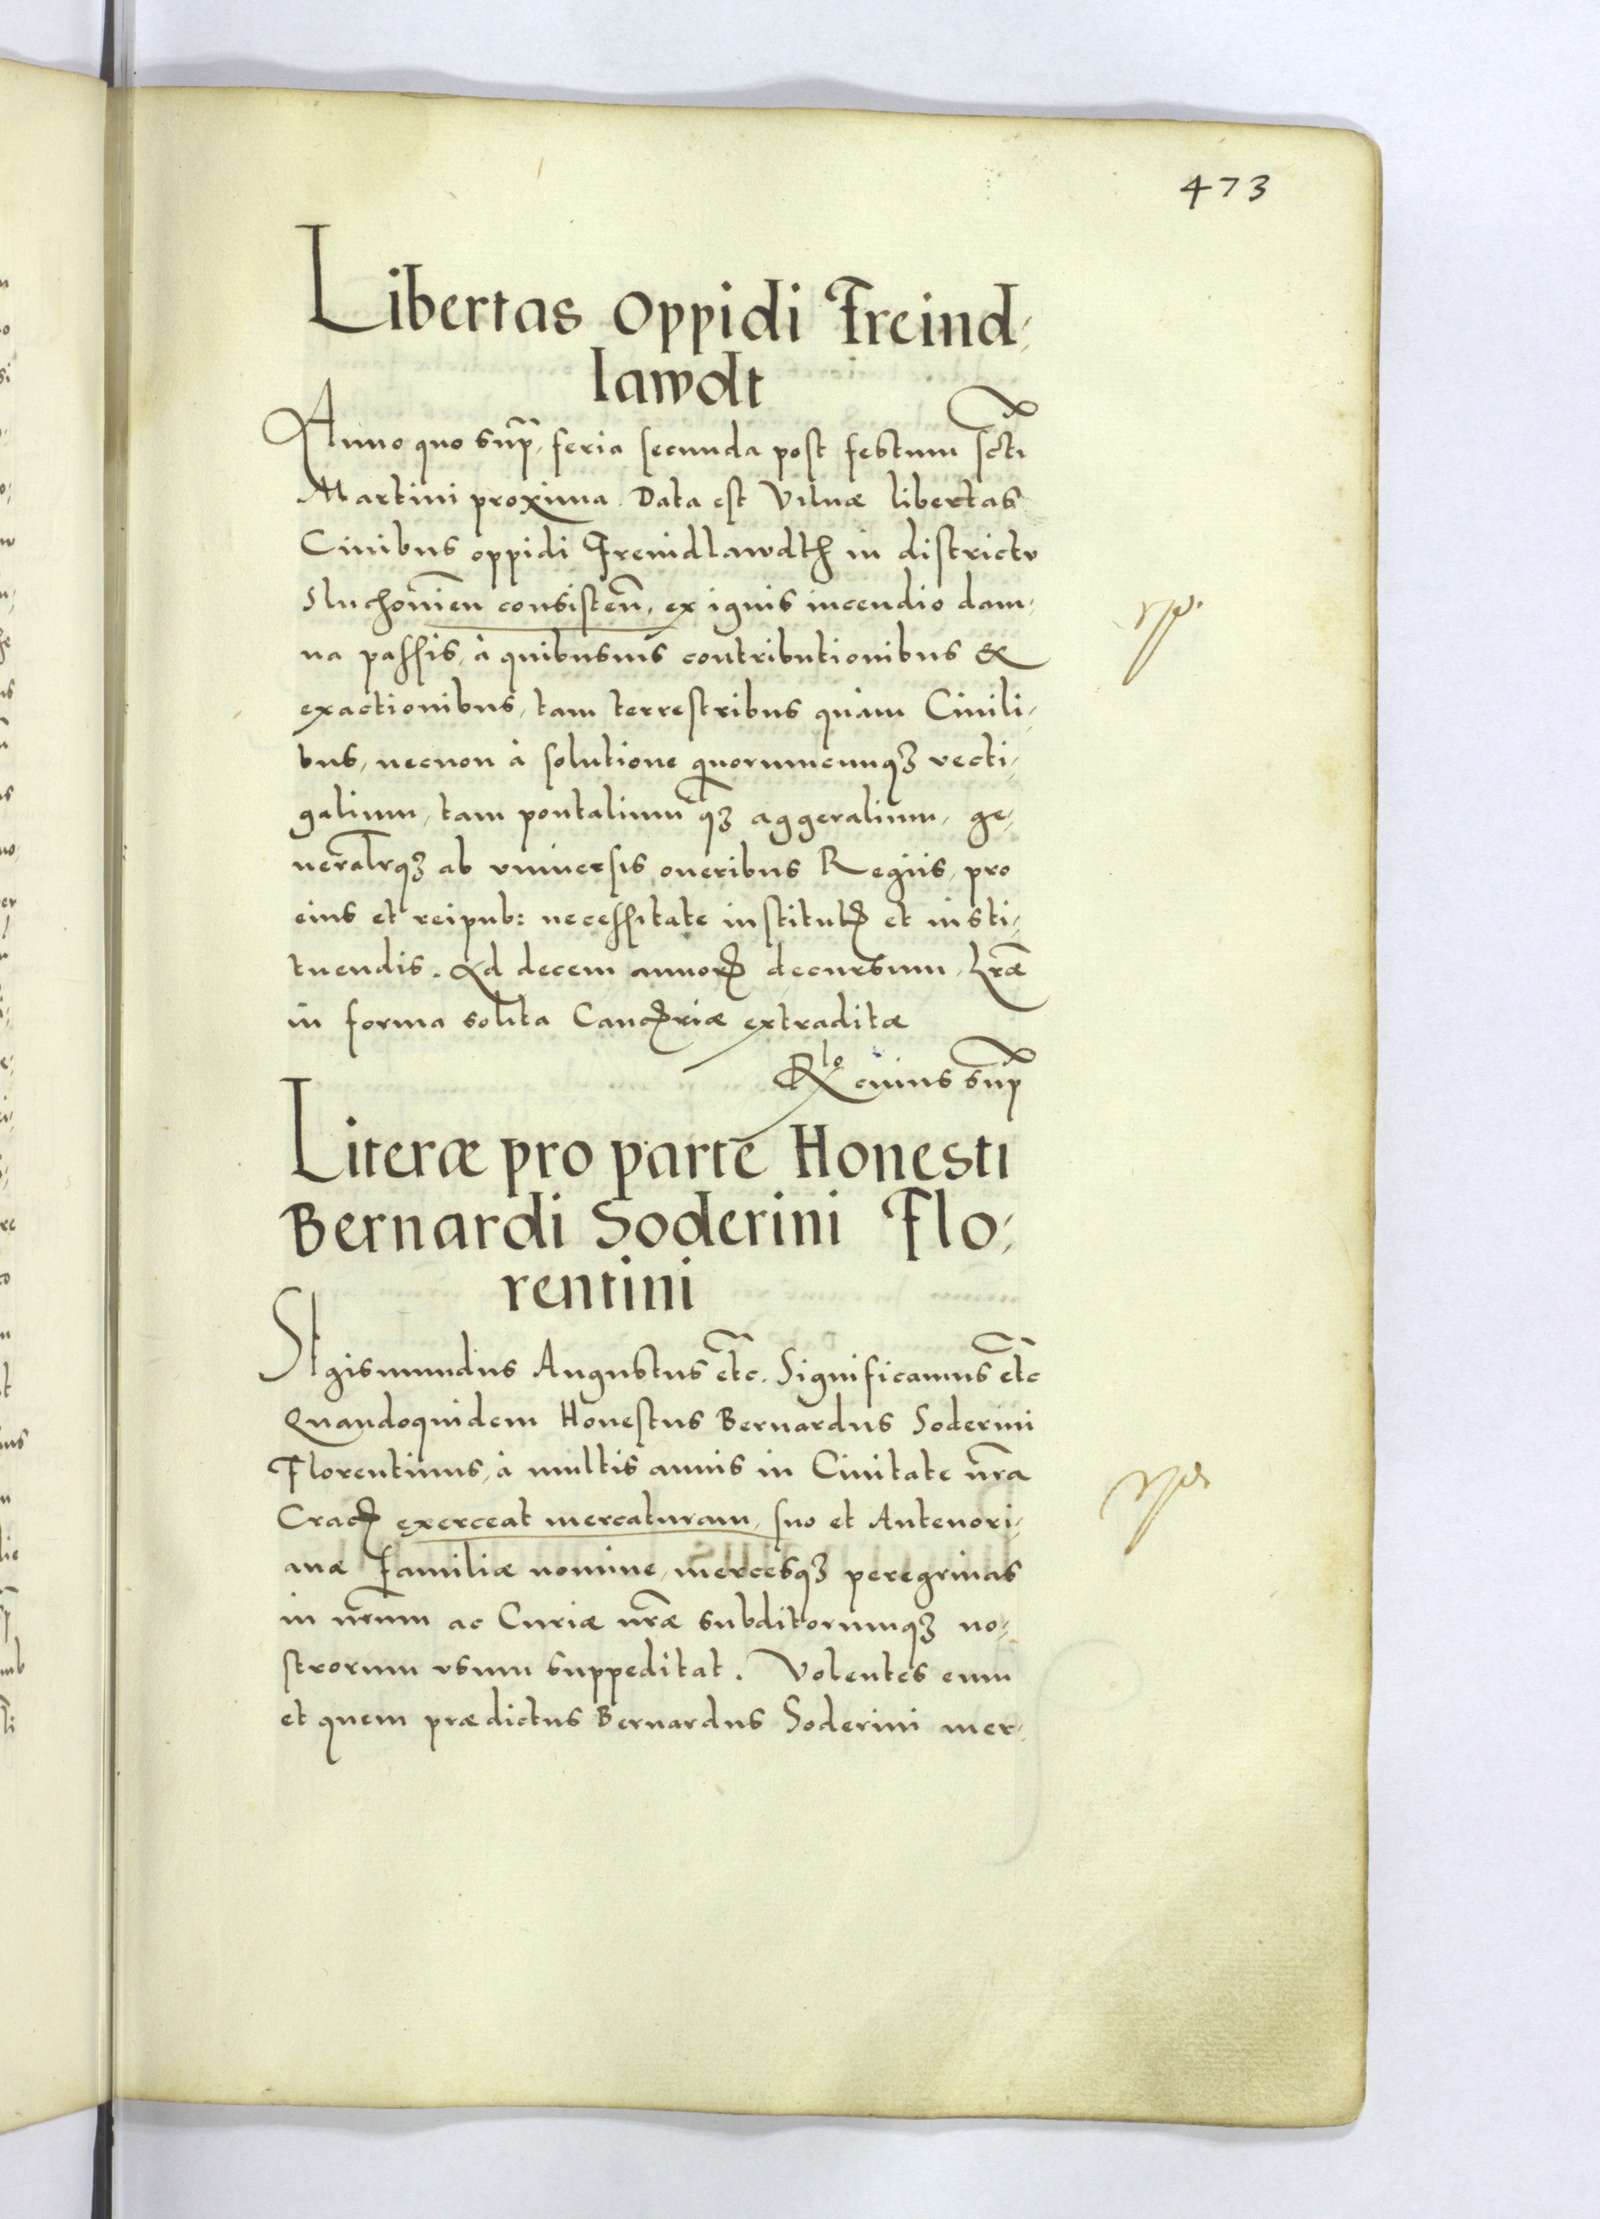 473
Libertas Oppidi Freind,
lawdt
Anno quo sup, feria secunda post festum scti
Martini proxima. Data est Vilnæ libertas
Ciuibus oppidi Freindlawdth in districtu
Sluchonien consisten, ex ignis incendio dam,
na passis, à quibusuis contributionibus &
exactionibus, tam terrestribus quàm Ciuili,
bus, necnon à solutione quorumcunqȝ vecti,
galium, tam pontalium qȝ aggeralium, ge,
neralrqȝ ab vniuersis oneribus Regiis, pro
eius et reipub: necessitate institutꝭ et insti,
tuendis. Ad decem annorꝭ decursum, Lræ
in forma solita Cancꝭriæ extraditæ
Rlo cuius sup
Literæ pro parte Honesti
Bernardi Soderini Flo,
rentini
Sigismundus Augustus etc. Significamus etc
Quandoquidem Honestus Bernardus Soderini
Florentinus, à multis annis in Ciuitate nra
Cracꝭ exerceat mercaturam, suo et Antenori,
anæ Familiæ nomine, mercesqȝ peregrinas
in nrum ac Curiæ nræ subditorumqȝ no,
strorum vsum suppeditat. Volentes eum
et quem prædictus Bernardus Soderini mer,